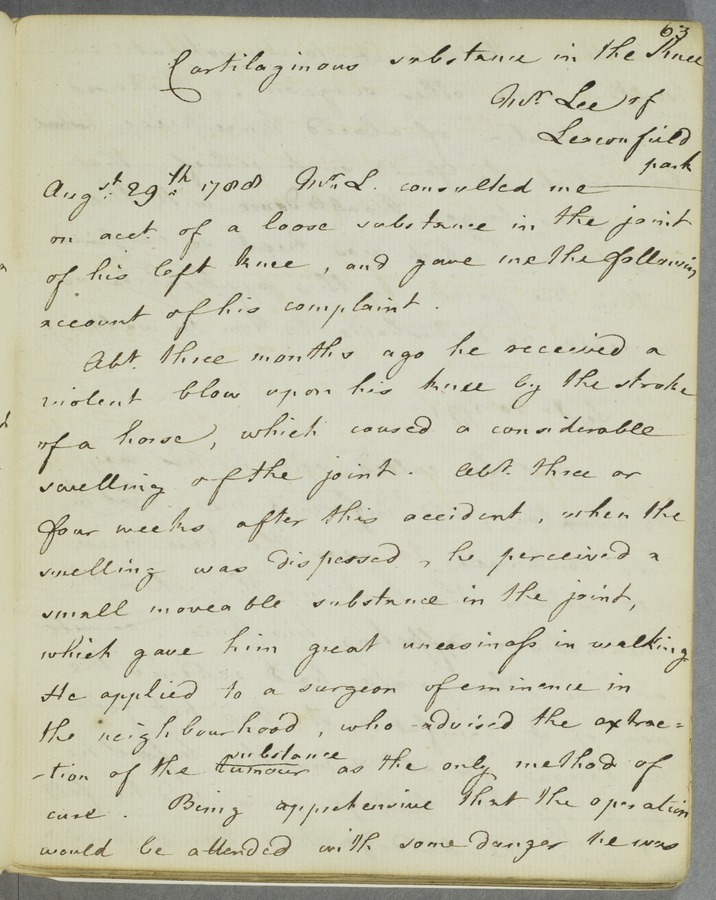 63
Cartilaginous substance in the Knee
Mr. Lee of
Leconfield
park
Augst. 29th 1788 Mr. L. consulted me
on acct. of a loose substance in the joint
of his left knee, and gave me the following
account of his complaint.
Abt. three months ago he received a
violent blow upon his knee by the stroke
of a horse, which caused a considerable
swelling of the joint. Abt. three or
four weeks after this accident, when the
swelling was dispersed, he perceived a
small moveable substance in the joint,
which gave him great uneasiness in walking
He applied to a surgeon of eminence in
the neighbourhood, who advised the extrac=
-tion of the tumour substance as the only method of
cure. Being apprehensive that the operation
would be attended with some danger he was